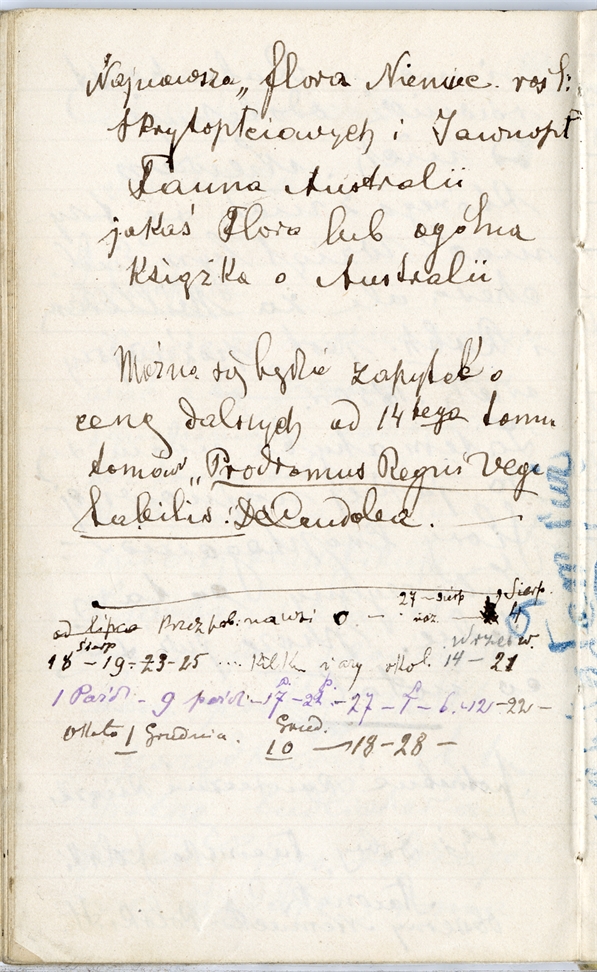 Najnowsza „ flora Niemiec. rośl:
Skrytopłciowych i Jawnopł
Fauna Australii
jakaś Flora lub ogólna
Książka o Australii
Można się będzie zapytać o
cenę dalszych od 14tego tomu
tomów „Prodromus Regni Vege
tabilis : DeCandolea.
27 – sierp Sierp.
od Lipca 4
Sierp Wrześ.
18 – 19 – 23 – 25 .... razy okoł. 14 – 21
1 Paźdz – 9 paźdz – 17 – 22 – 27 – – 6. – 12 – 22 –
Około 1 Grudnia. Grud.
10 – 18 – 28 –